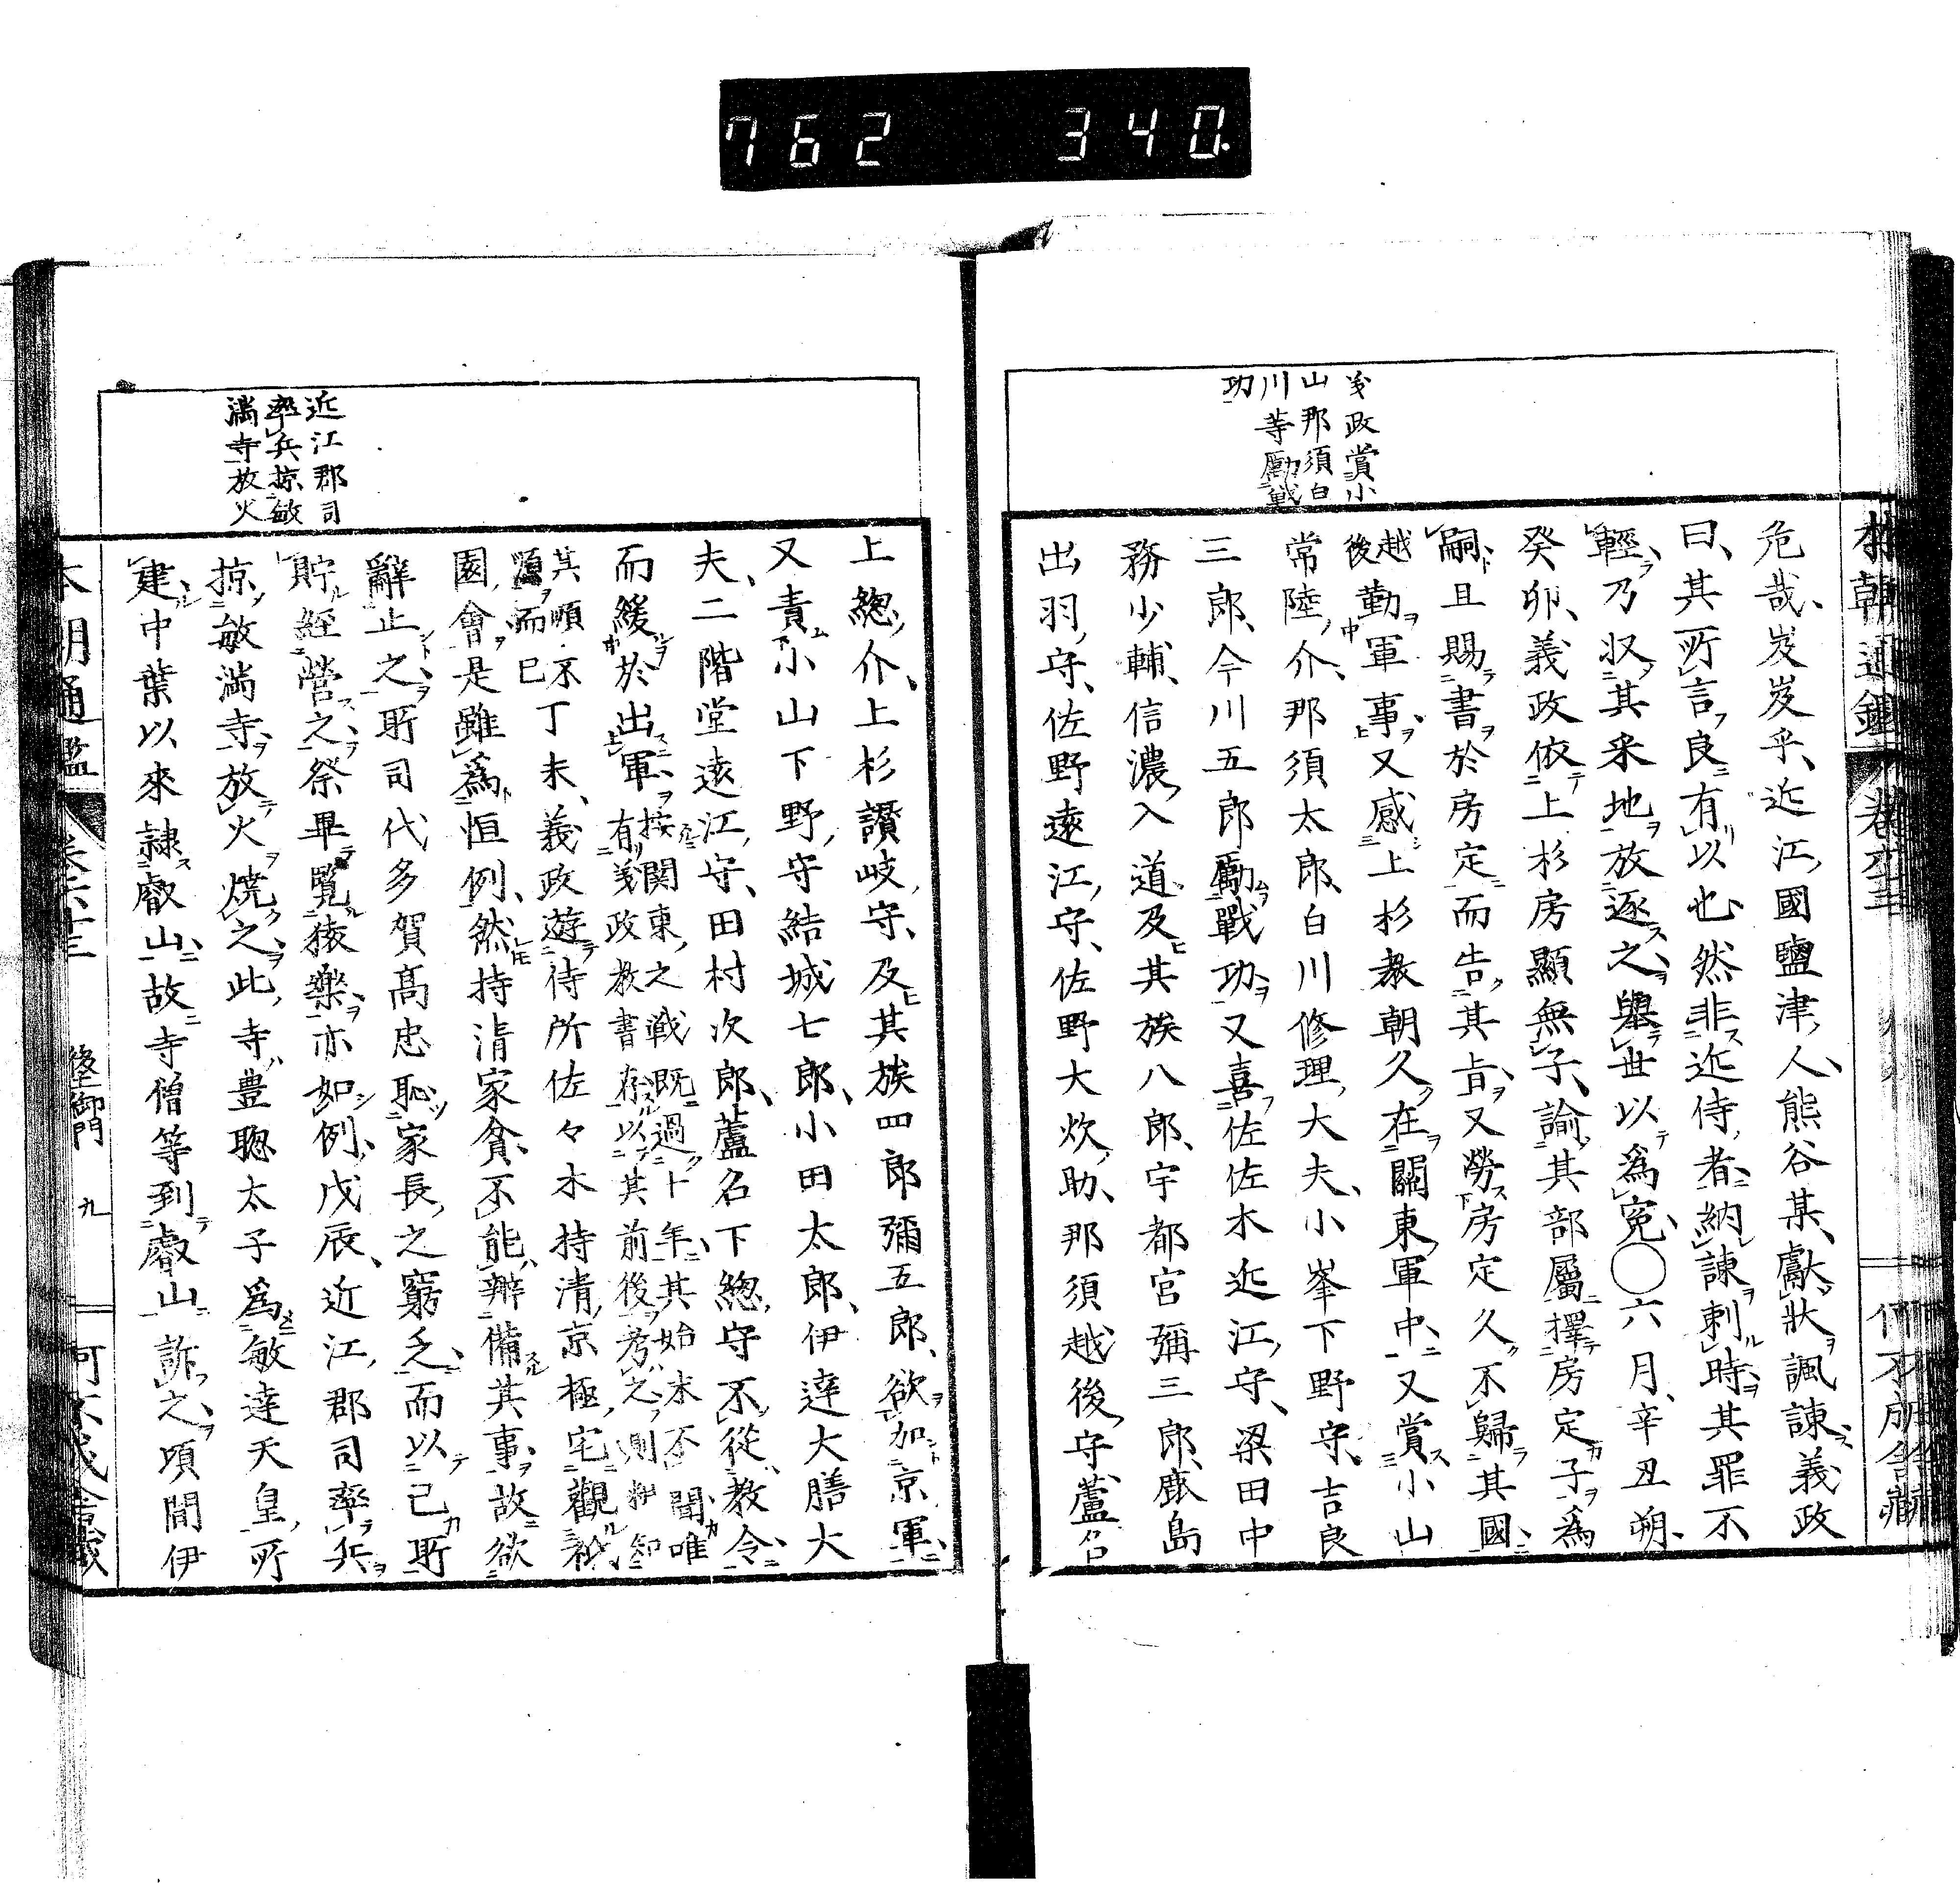 762 340.
義政賞小
山那須白
川等勵戰
功
危哉岌岌乎近江國鹽津人熊谷某獻狀諷諫義政
曰其所言良有以也然非近侍者納諫剌時其罪不
輕乃収其釆地放逐之舉世以爲寃〇六月辛丑朔
癸卯義政依上杉房顯無子諭其部屬擇房定子爲
嗣且賜書於房定而告其旨又勞房定久不歸其國
越後
勤軍事又感上杉教朝久在關東軍中又賞小山
常陸介那須太郎白川修理大夫小峯下野守吉良
三郎今川五郎勵戰功又喜佐佐木近江守梁田中
務少輔信濃入道及其族八郎宇都宮彌三郎鹿島
出羽守佐野遠江守佐野大炊助那須越後守蘆名
上總介上杉讚岐守及其族四郎彌五郎欲加京軍
又責小山下野守結城七郎小田太郎伊達大膳大
夫二階堂遠江守田村次郎蘆名下總守不從教令
而緩於出軍
按関東之戦既過十年其始末不聞唯
有義政教書存以其前後考之則粗知
其順不
順而已
丁未義政遊待所佐々木持清京極宅觀祇
園會是雖爲恒例然持清家貧不能辦備其事故欲
辭止之所司代多賀高忠恥家長之窮乏而以己所
貯經營之祭畢覽猿樂亦如例戊辰近江郡司率兵
掠敏満寺放火燒之此寺豊聰太子爲敏達天皇所
建中葉以來隷叡山故寺僧等到叡山訴之頃間伊
近江郡司
率兵掠敏
満寺放火
本朝通鑑 卷六十三 後土御門 九